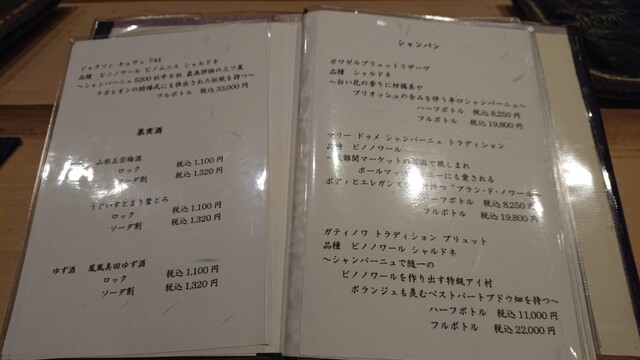 ジャクソン キュヴェ 744
品種 ピノノワール ピノムニエ シャルドネ
～シャンパーニュ 5200 社中 9 社 最高評価の三ツ星
ナポレオンの結婚式にも供出された伝統を持つ～
フルボトル 税込 33,000 円
果実酒
山形正宗梅酒 税込 1,100 円
ロック 税込 1,320 円
ソーダ割
うぐいすとまり鶯とろ
ロック 税込 1,100 円
ソーダ割 税込 1,320 円
ゆず酒 鳳凰美田ゆず酒
ロック 税込 1,100 円
ソーダ割 税込 1,320 円
シャンパン
ポワゼルブリュットリザーヴ
品種 シャルドネ
～白い花の香りに柑橘系や
ブリオッシュの含みを伴う辛口シャンパーニュ～
ハーフボトル 税込 8,250 円
フルボトル 税込 19,800 円
マリー ドゥメ シャンパーニュ トラディション
品種 ピノノワール
難関マーケットの で親しまれ
ポールマッ ニーにも愛される
ボディとエレガンス 持つ "ブラン・ド・ノワール～
ハーフボトル 税込 8,250 円
フルボトル 税込 19,800 円
ガティノワ トラディション ブリュット
品種 ピノノワール シャルドネ
～シャンパーニュで随一の
ピノノワールを作り出す特級アイ村
ボランジェも羨むベストパートブドウ畑を持つ～
ハーフボトル 税込 11,000 円
フルボトル 税込 22,000 円